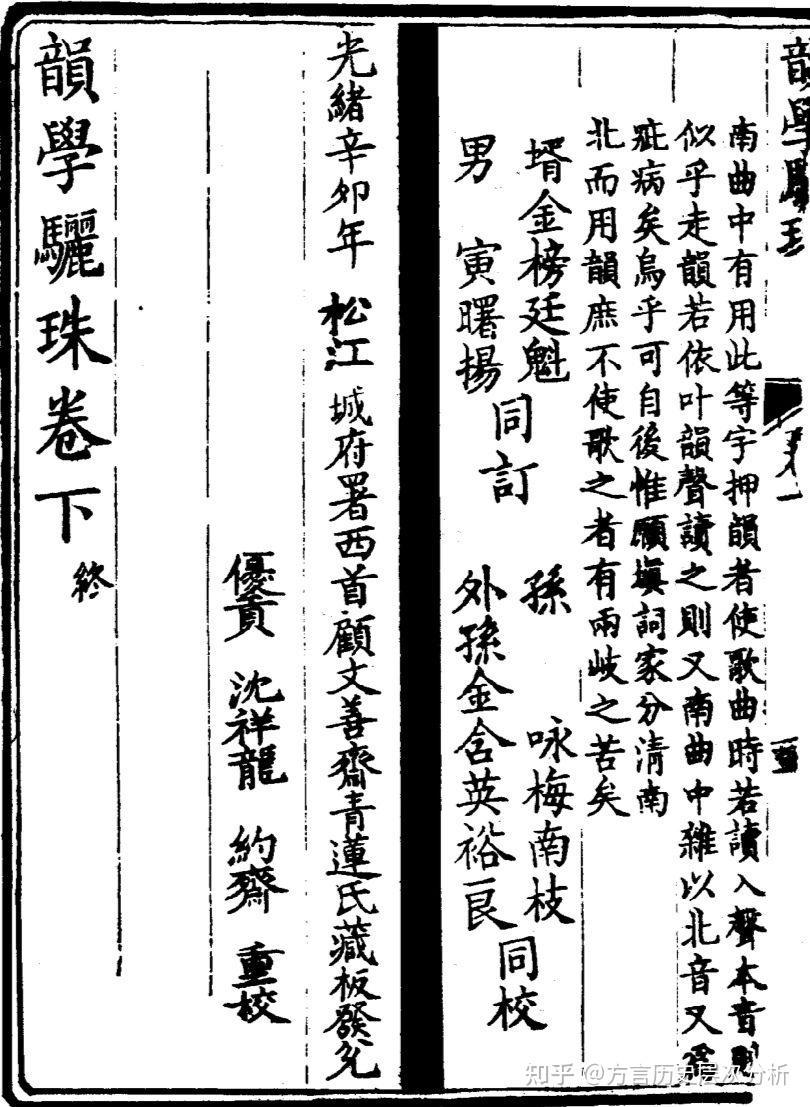 韻學驪珠
南曲中有用此等字押韻者使歌曲時若讀入聲本音則
似乎走韻若依叶韻聲讀之則又南曲中雜以北音又為
疵病矣烏乎可自後惟願塡詞家分清南
北而用韻庶不使歌之者有兩岐之苦矣
壻金榜廷魁
男 寅曙揚
同訂
孫 咏梅南枝
外孫金含英裕良
同校
光緒辛卯年 松江 城府署西首顧文善齋青蓮氏藏板發兌
優貢 沈祥龍 約齋 重校
韻學驪珠卷下 終
知乎 @方言历史层次分析